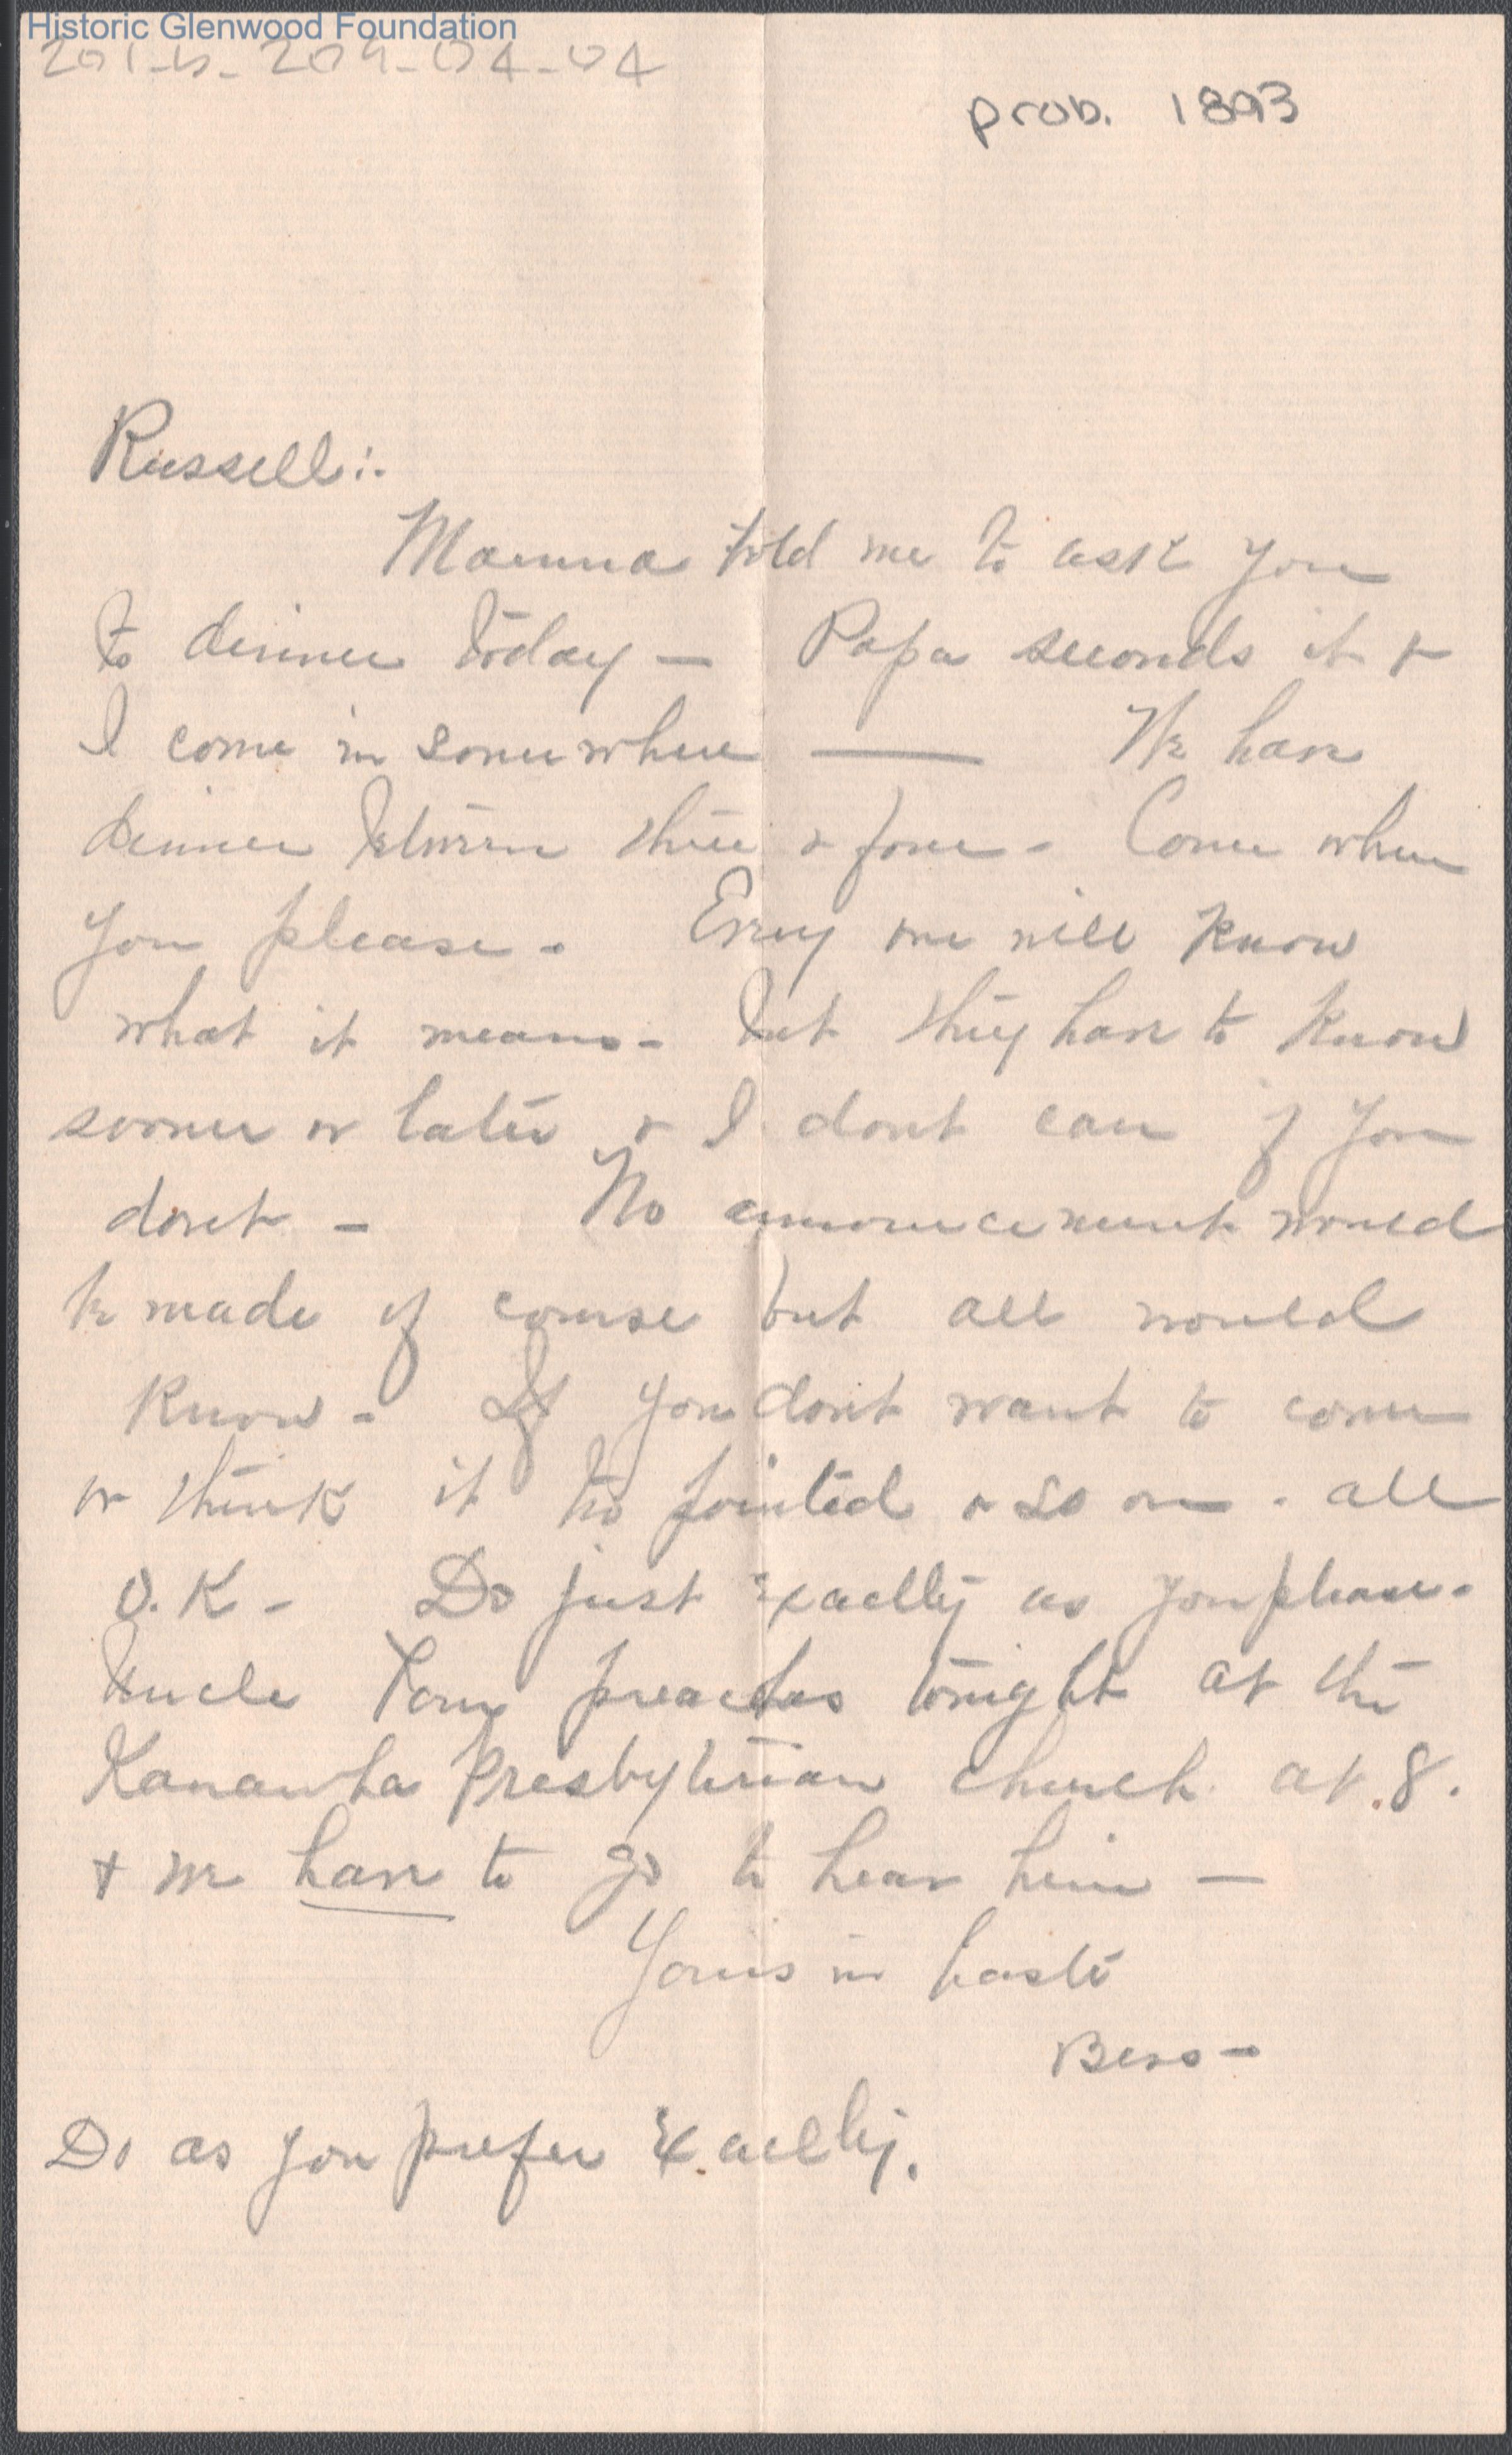 Historic Glenwood Foundation
prob. 1893
Russell:-
Mamma told me to ask you
to dinner today — Papa seconds it &
I come in somewhere —— We have
dinner between three & four - Come when
you please - Every one will know
what it means - but they have to know
sooner or later & I dont care if you
dont - No announcement would
be made of course but all would
know - If you dont want to come
or think it too pointed & so on - all
O.K - Do just exactly as you please -
Uncle Tom preaches tonight at the
Kanawha Presbyterian church at 8.
& we have to go to hear him —
Yours in haste
Bess -
Do as you prefer exactly.